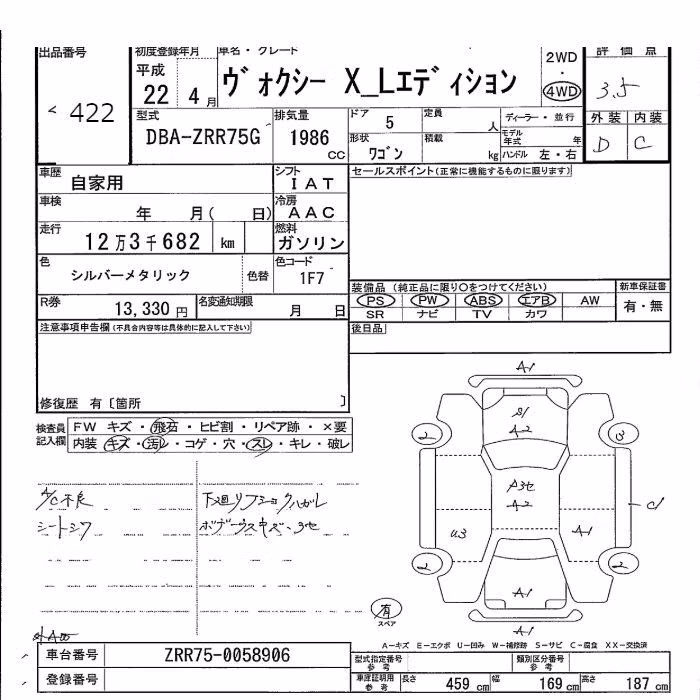 出品番号
422
初度登録年月
平成
22 4 月
車名・グレード
ヴォクシー X_Lエディション
2WD
・
4WD
評価点
3.5
外装 内装
D C
型式
DBA-ZRR75G
排気量
1986
CC
ドア
5
定員
人
形状
ワゴン
積載
kg
ディーラー・並行
モデル
年式
年
ハンドル 左・右
車歴
自家用
シフト
IAT
車検
年 月( 日)
冷房
AAC
走行
12万3千682 km
燃料
ガソリン
色
シルバーメタリック
色替
色コード
1F7
R券
13,330 円
名変通知期限
月 日
セールスポイント(正常に機能するものに限ります)
装備品 (純正品に限り○をつけてください)
PS PW ABS エアB AW
SR ナビ TV カワ
新車保証書
有・無
後日品
注意事項申告欄(不具合内容等は具体的に記入して下さい)
修復歴 有〔箇所 〕
検査員
記入欄
FW キズ・飛石・ヒビ割・リペア跡・×要
内装 キズ・汚レ・コゲ・穴・スレ・キレ・破レ
A/C不良
シートシワ
下廻リ
A1
S1
A2
2
3
A2
U3
A1
2
2
A1
A1
有
スペア
A-キズ E-エクボ U-凹み W-補修跡 S-サビ C-腐食 XX-交換済
車台番号
ZRR75-0058906
登録番号
型式指定番号
参考
類別区分番号
参考
車庫証明用
参考
長さ 459 cm 幅 169 cm 高さ 187 cm